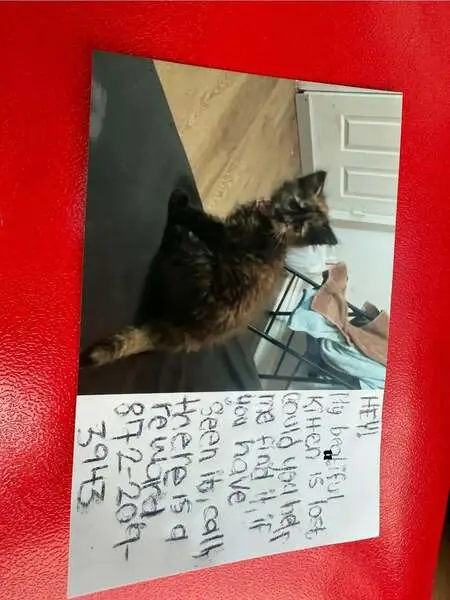 HEY!
My beautiful
Kitten is lost
could you help
me find it, if
you have
seen it, call,
there is a
reward
872-209-
3943